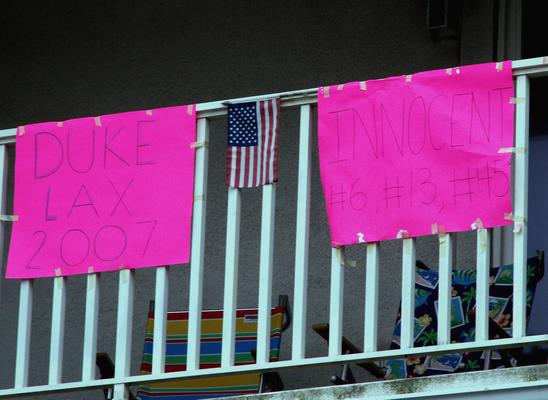 DUKE
LAX
2007
INNOCENT
#6, #13, #45